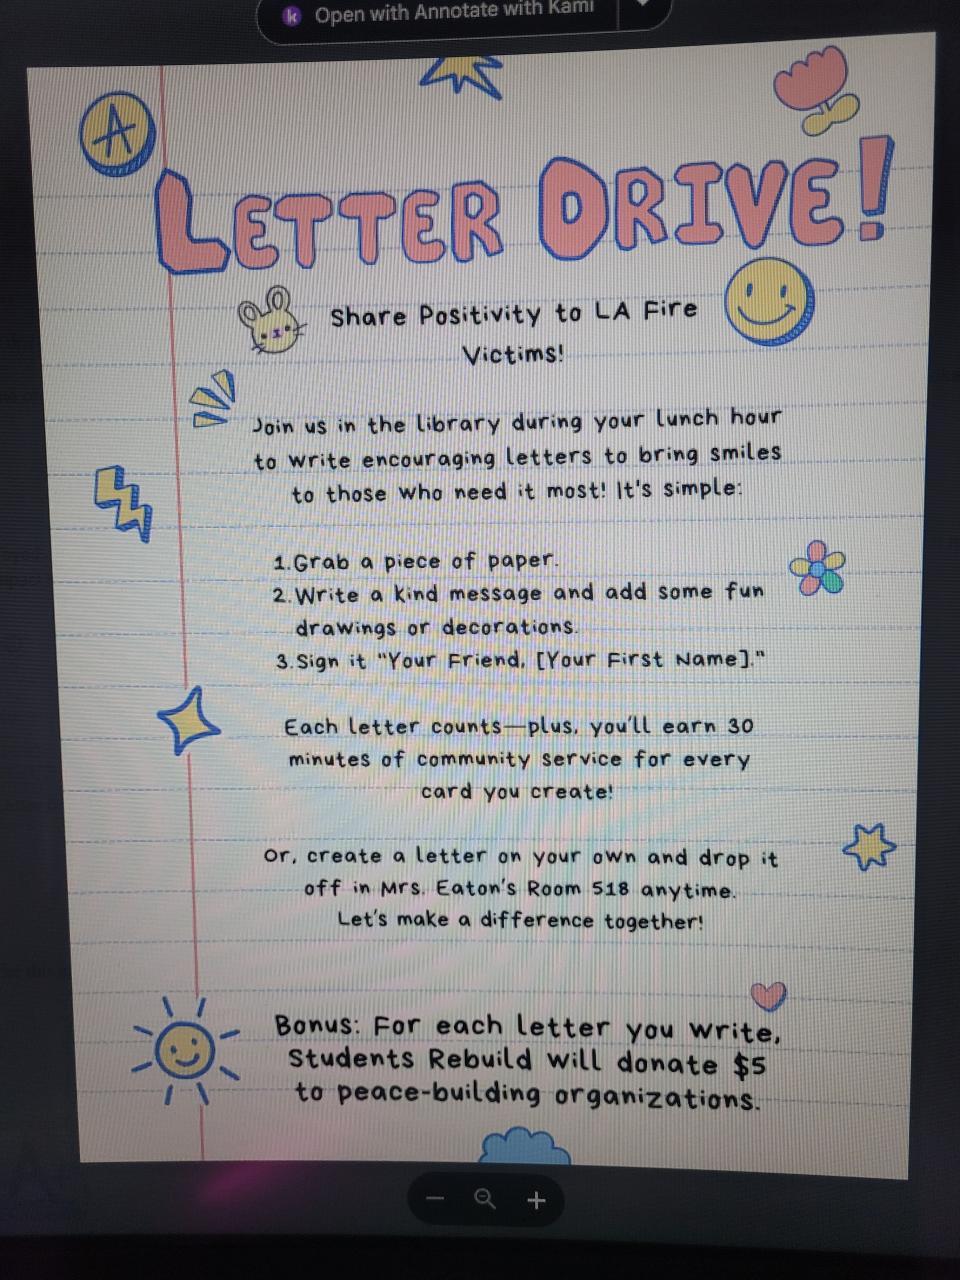 Open with Annotate with Kami
A
LETTER DRIVE!
Share Positivity to LA Fire
Victims!
Join us in the library during your lunch hour
to write encouraging letters to bring smiles
to those who need it most! It's simple:
1.Grab a piece of paper.
2.Write a kind message and add some fun
drawings or decorations.
3.Sign it "Your Friend, [Your First Name]."
Each letter counts—plus, you'll earn 30
minutes of community service for every
card you create!
Or, create a letter on your own and drop it
off in Mrs. Eaton's Room 518 anytime.
Let's make a difference together!
Bonus: For each letter you write,
Students Rebuild will donate $5
to peace-building organizations.